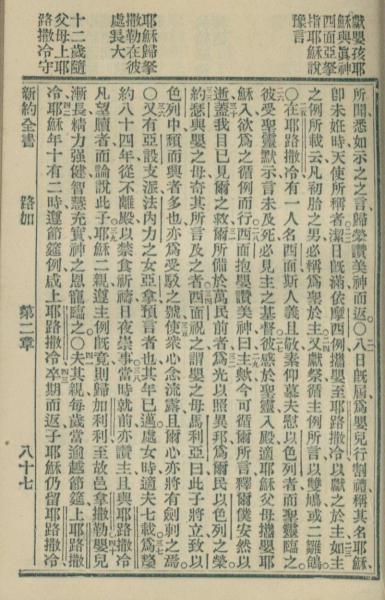 獻嬰孩耶
穌與眞神
西面亞拏
指耶穌說
豫言
耶穌歸拏
撒勒在彼
處長大
十二歲隨
父母上耶
路撒冷守
所聞悉如示之之言歸榮讚美神而返。○八日旣屆爲嬰兒行割禮稱其名耶穌
卽未妊時天使所稱者潔日旣滿依摩西例攜嬰至耶路撒冷以獻之於主如主
之例所載云凡初胎之男必稱爲聖於主又獻祭循主例所言以雙鳩或二雛鴿
○在耶路撒冷有一人名西面斯人義且敬素仰慕夫慰以色列者而聖靈臨之
彼受聖靈默示言未及死必見主之基督彼感於聖靈入殿適耶穌父母攜嬰耶
穌入欲爲之循例而行西面抱嬰讚美神曰主歟今可循爾所言釋爾僕安然以
逝蓋我目已見爾之救爾所備於萬民前者爲光以照異邦爲爾民以色列之榮
約瑟與嬰之母奇其所言及之者西面祝之謂嬰之母馬利亞曰此子將立致以
色列中頹而興者多也亦爲受駁之號使衆心念流露且爾心亦將有劍刺之焉
○又有亞設支派法內力之女亞拿預言者也其年已邁處女時適夫七載爲嫠
約八十四年從不離殿以禁食祈禱日夜崇事當時就前亦讚主且與耶路撒冷
凡望贖者而論說此子耶穌二親遵主例旣竟則歸加利利至故邑拿撒勒嬰兒
漸長精力强健智慧充實神之恩寵臨之○夫其親每歲當逾越節筵上耶路撒
冷耶穌年十有二時遵節筵例咸上耶路撒冷卒期而返子耶穌仍留耶路撒冷
新約全書 路加 第二章 八十七